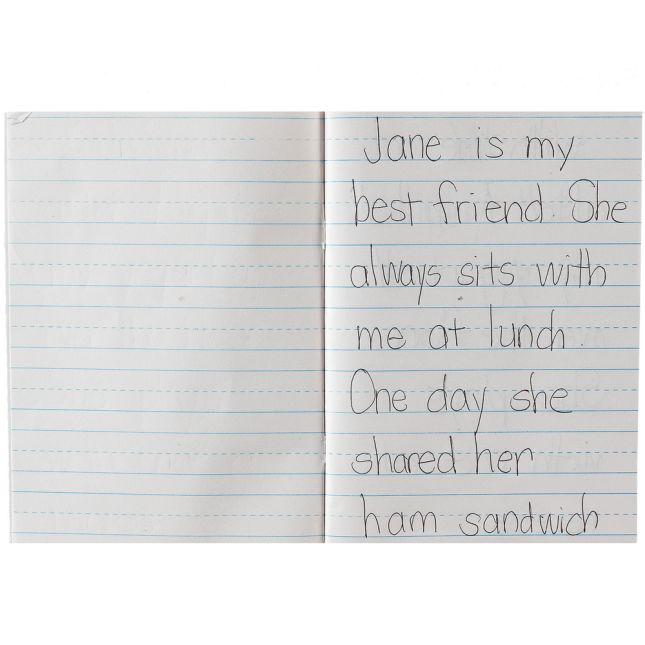 Jane is my
best friend. She
always sits with
me at lunch.
One day she
shared her
ham sandwich